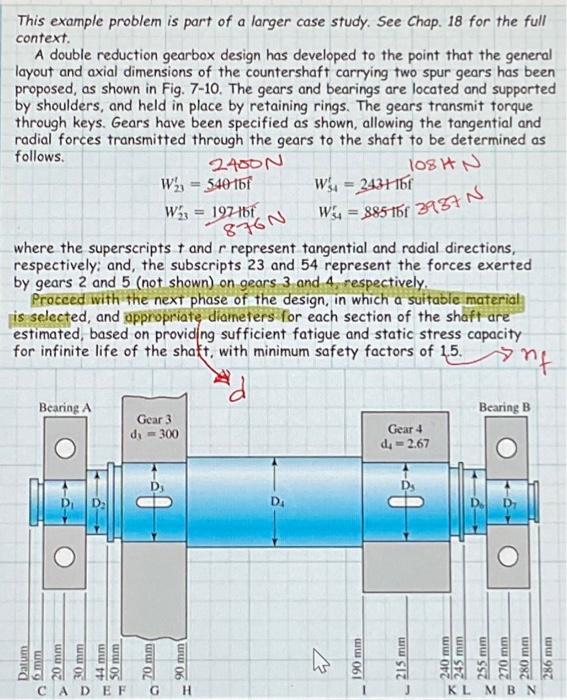 This example problem is part of a larger case study. See Chap. 18 for the full
context.
A double reduction gearbox design has developed to the point that the general
layout and axial dimensions of the countershaft carrying two spur gears has been
proposed, as shown in Fig. 7-10. The gears and bearings are located and supported
by shoulders, and held in place by retaining rings. The gears transmit torque
through keys. Gears have been specified as shown, allowing the tangential and
radial forces transmitted through the gears to the shaft to be determined as
follows.
2400N 108HN
W^t_23 = 540 lbf W^t_54 = 2431 lbf
W^r_23 = 197 lbf W^r_54 = 885 lbf 3937 N
876N
where the superscripts t and r represent tangential and radial directions,
respectively; and, the subscripts 23 and 54 represent the forces exerted
by gears 2 and 5 (not shown) on gears 3 and 4, respectively.
Proceed with the next phase of the design, in which a suitable material
is selected, and appropriate diameters for each section of the shaft are
estimated, based on providing sufficient fatigue and static stress capacity
for infinite life of the shaft, with minimum safety factors of 1.5. nf
d
Bearing A Bearing B
Gear 3 Gear 4
d3 = 300 d4 = 2.67
D1 D2 D3 D4 D5 D6 D7
Datum 6 mm 20 mm 30 mm 44 mm 50 mm 70 mm 90 mm 190 mm 215 mm 240 mm 245 mm 255 mm 270 mm 280 mm 286 mm
C A D E F G H I J K L M B N